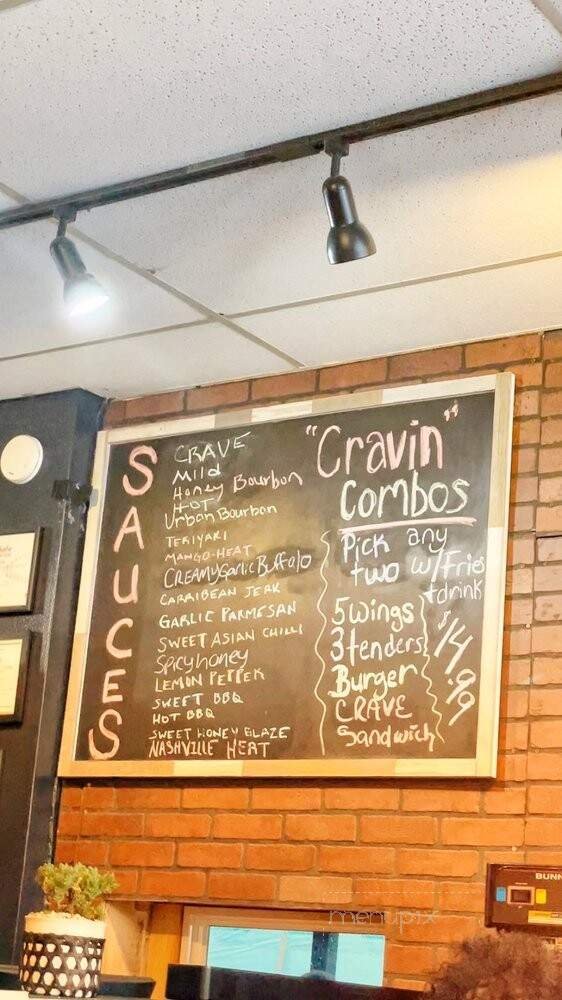 SAUCES
CRAVE
Mild
Honey Bourbon
HOT
Urban Bourbon
TERIYAKI
MANGO-HEAT
CREAMY Garlic Buffalo
CARRIBEAN JERK
GARLIC PARMESAN
SWEET ASIAN CHILLI
Spicy honey
LEMON PEPPER
SWEET BBQ
HOT BBQ
SWEET HONEY GLAZE
NASHVILLE HEAT
"Cravin"
Combos
Pick any
two w/Fries
+drink
5 wings
3 tenders
Burger
CRAVE
Sandwich
$14.99
BUNN
menupix